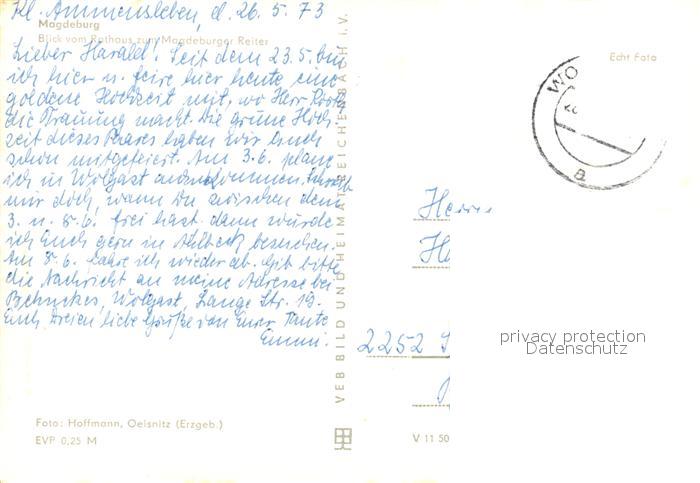 Kl. Ammensleben, d. 26. 5. 73
Magdeburg
Blick vom Rathaus zum Magdeburger Reiter
Lieber Harald! Seit dem 23. 5. bin
ich hier u. feire hier heute eine
goldene Hochzeit mit, wo Herr
die Trauung macht. Die grüne Hoch-
zeit dieses Paares haben wir auch
schon mitgefeiert. Am 3. 6. plane
ich in Wolgast anzukommen. Schreib
mir doch, wann Du zwischen dem
3. u. 8. 6. frei hast. dann würde
ich Euch gern in Ahlbeck besuchen.
Am 8. 6. fahre ich wieder ab. Gib bitte
die Nachricht an meine Adresse bei
Wolgast, Lange Str. 19.
Euch Dreien liebe Grüße von Eurer Tante
Emmi.
Foto: Hoffmann, Oelsnitz (Erzgeb.)
EVP 0,25 M
VEB BILD UND HEIMAT REICHENBACH I. V.
Echt Foto
WO
a
Herrn
H
2252
V 11 50
privacy protection
Datenschutz